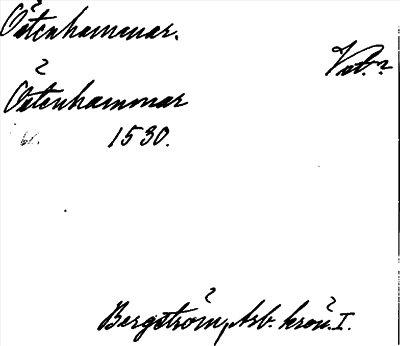 Östenhammar.
Vst.?
Östenhammar
1530.
Bergström, Arb. krön. I.